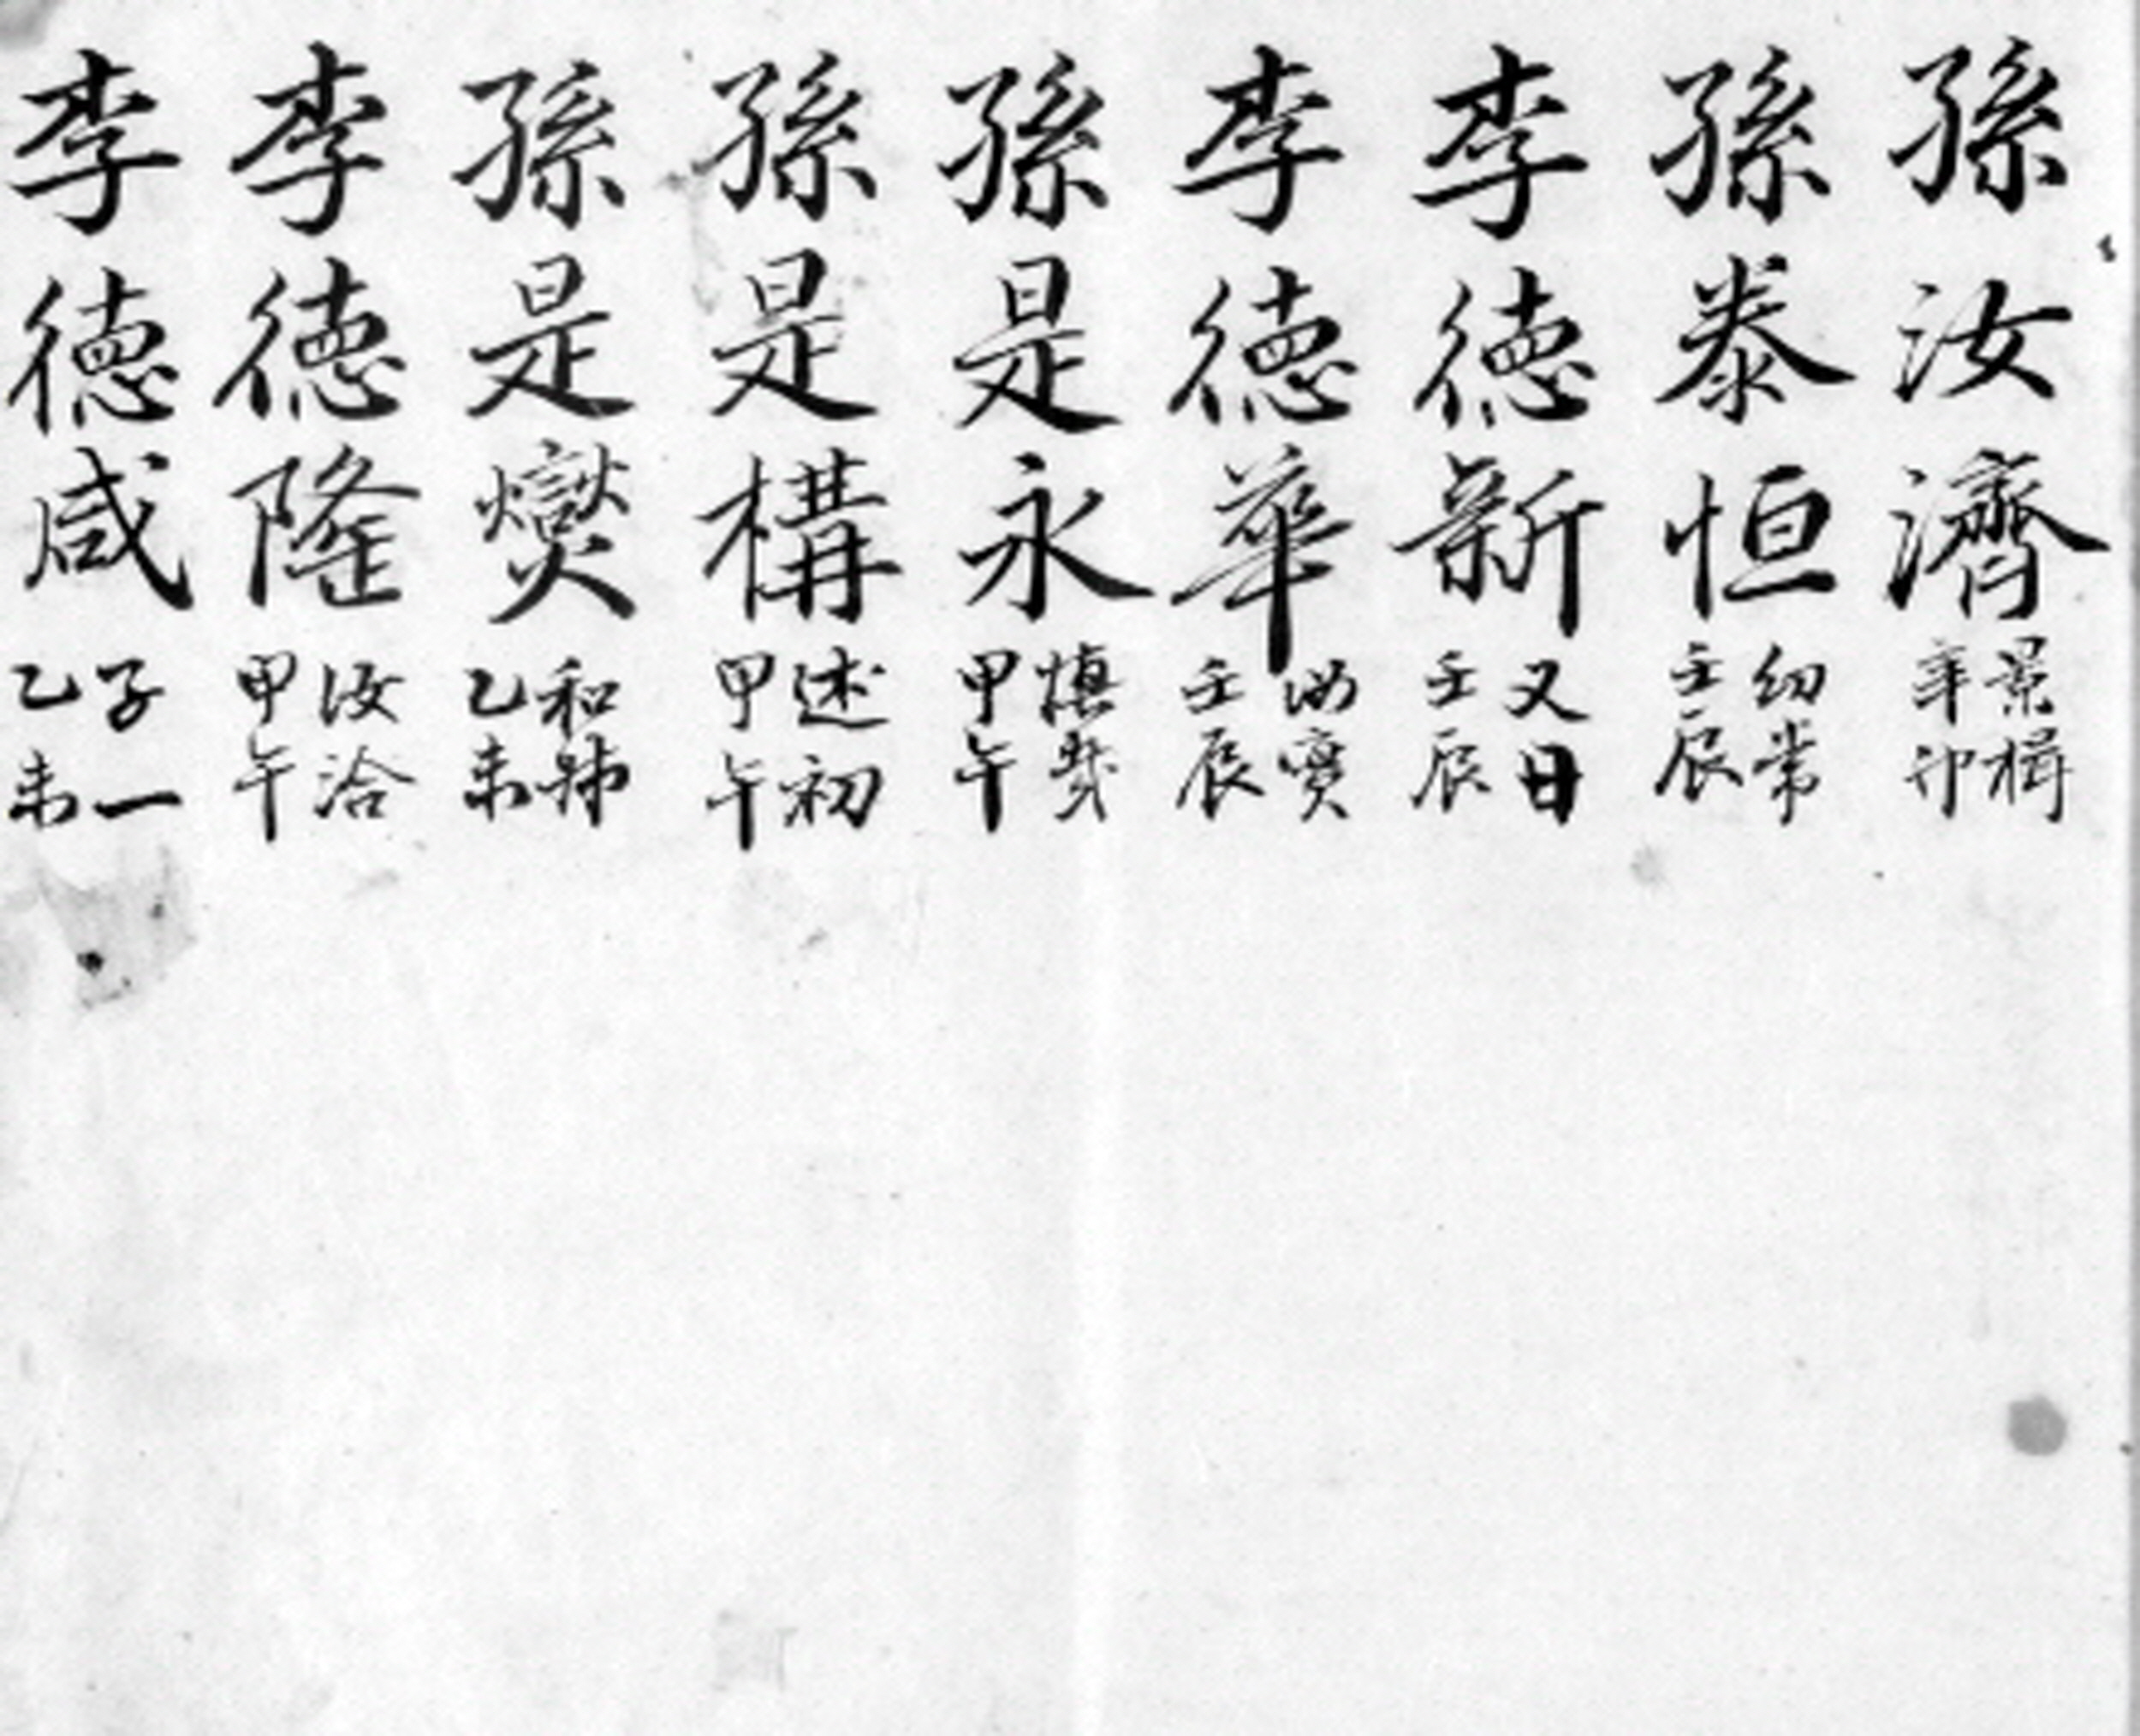 孫汝濟 景楫 辛卯
孫泰恒 幼常 壬辰
李德新 又日 壬辰
李德華 汝實 壬辰
孫是永 愼哉 甲午
孫是構 述初 甲午
孫是爕 和 乙未
李德隆 汝洽 甲午
李德咸 子一 乙未